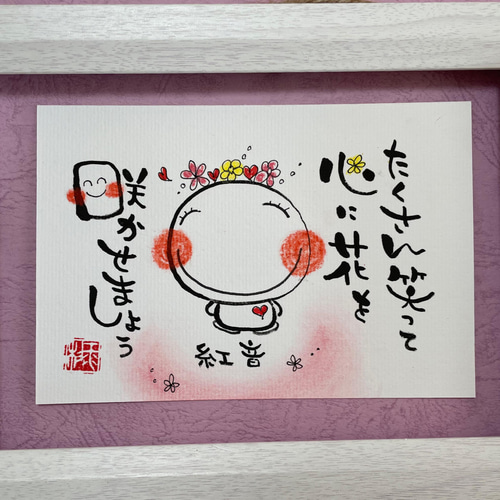 たくさん笑って
心に花を
咲かせましょう
紅音